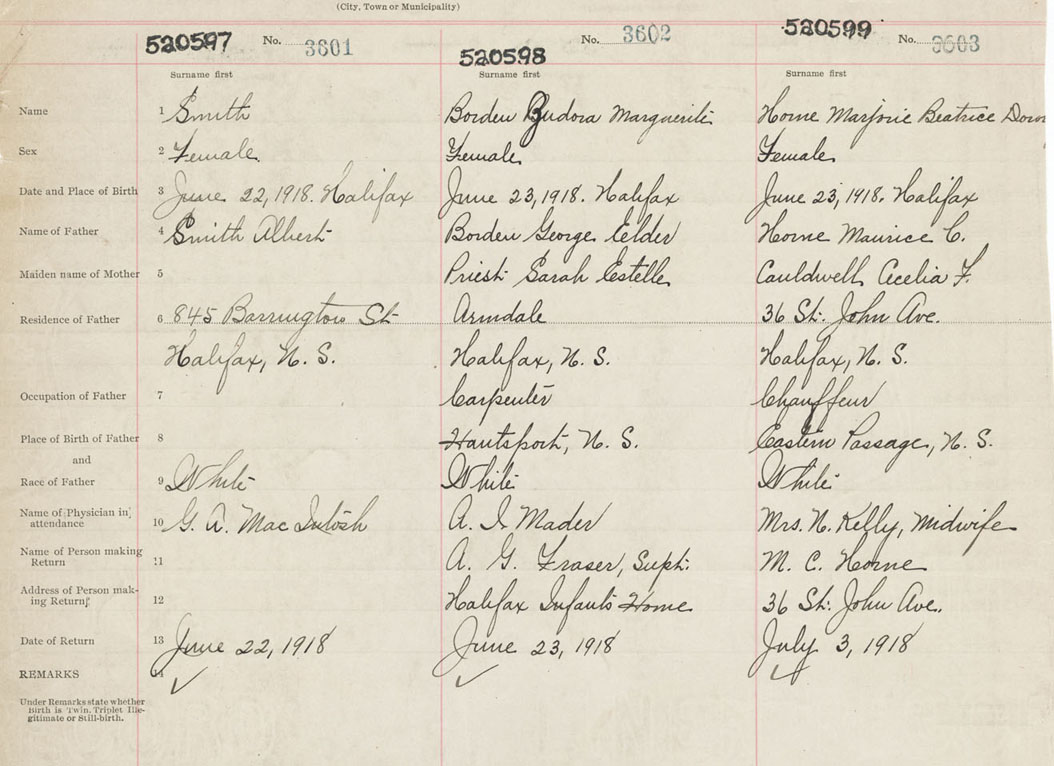 (City, Town or Municipality)
520597 No. 3601 520598 No. 3602 520599 No. 3603
Surname first Surname first Surname first
Name 1 Smith Borden Eudora Marguerite Horne Marjorie Beatrice
Sex 2 Female Female Female
Date and Place of Birth 3 June 22, 1918. Halifax June 23, 1918. Halifax June 23, 1918. Halifax
Name of Father 4 Smith Albert Borden George Elder Horne Maurice C.
Maiden name of Mother 5 Priest Sarah Estelle Cauldwell Cecelia F.
Residence of Father 6 845 Barrington St Armdale 36 St. John Ave.
Halifax, N. S. Halifax, N. S. Halifax, N. S.
Occupation of Father 7 Carpenter Chauffeur
Place of Birth of Father 8 Hantsport, N. S. Eastern Passage, N. S.
and
Race of Father 9 White White White
Name of Physician in
attendance 10 G. A. MacIntosh A. I. Mader Mrs. N. Kelly, Midwife
Name of Person making
Return 11 A. G. Fraser, Supt. M. C. Horne
Address of Person mak-
ing Return 12 Halifax Infants Home 36 St. John Ave.
Date of Return 13 June 22, 1918 June 23, 1918 July 3, 1918
REMARKS 14
Under Remarks state whether
Birth is Twin. Triplet Ille-
gitimate or Still-birth.